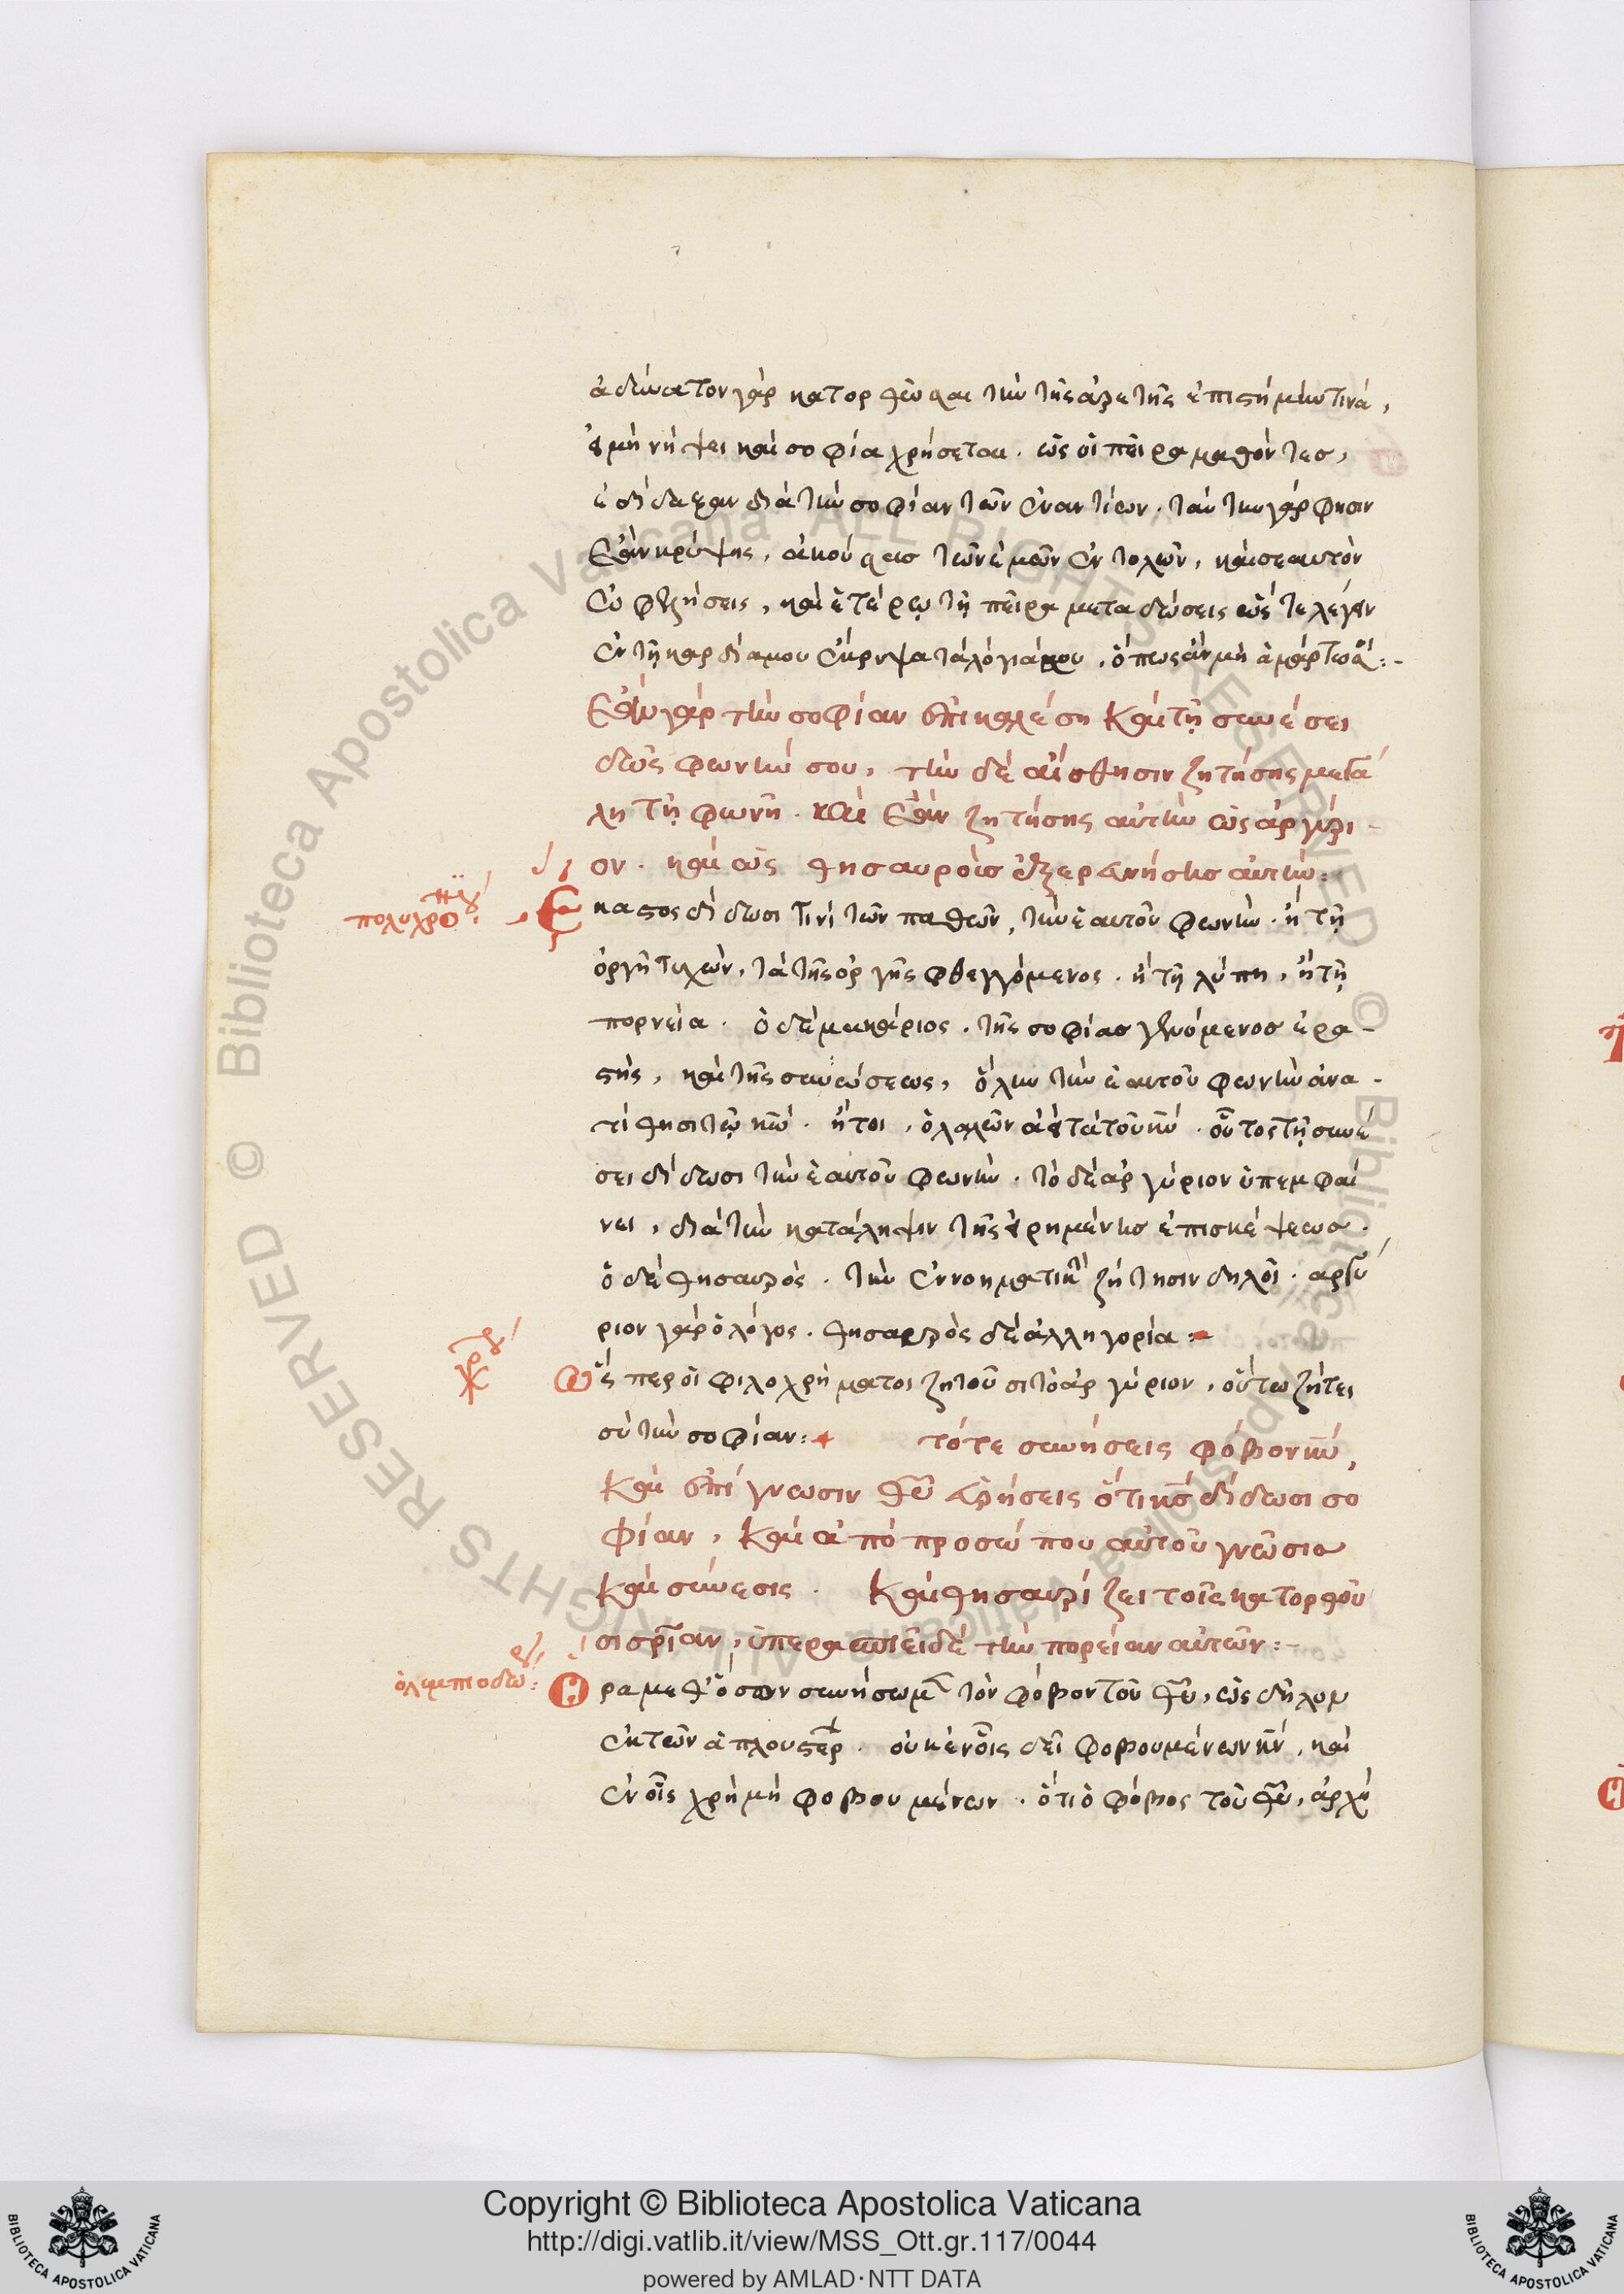 ἀδύνατον γὰρ κατορθῶσαι τὴν τῆς ἀρετῆς ἐπιστήμην τινὰ,
εἰ μὴ νήψει καὶ σοφία χρήσεται. ὡς οἱ πεῖρα μαθόντες,
ἐδίδαξαν διὰ τὴν σοφίαν τῶν ἐναντίων. ταύτην γάρ φησιν
ἐὰν κρύψης, ἀκούσας τῶν ἐμῶν ἐντολῶν, καὶ σεαυτὸν
ὠφελήσεις, καὶ ἑτέρῳ τῇ πεῖρα μεταδώσεις ὥστε λέγειν
ἐν τῇ καρδία μου ἔκρυψα τὰ λόγιά σου, ὅπως ἂν μὴ ἁμάρτω σοι:-
Ἐὰν γὰρ τὴν σοφίαν ἐπικαλέση καὶ τῇ συνέσει
δῶς φωνήν σου, τὴν δὲ αἴσθησιν ζητήσης μεγά
λη τῇ φωνῇ. καὶ ἐὰν ζητήσης αὐτὴν ὡς ἀργύρι-
ον. καὶ ὡς θησαυροὺς ἐξεραυνήσης αὐτήν:
πολυχρο:
Ἕκαστος δίδωσι τινὶ τῶν παθῶν, τὴν ἑαυτοῦ φωνήν. ἢ τῇ
ὀργῇ τυχὼν, τὰ τῆς ὀργῆς φθεγγόμενος. ἢ τῇ λύπη, ἢ τῇ
πορνεία. ὁ δὲ μακάριος, τῆς σοφίας γενόμενος ἐρα-
στὴς, καὶ τῆς συνέσεως, ὅλην τὴν ἑαυτοῦ φωνὴν ἀνα-
τίθησι τῷ κῶ. ἤτοι, ὁ λαλῶν ἀεὶ τὰ τοῦ κυ. οὗτος τῇ συνέ
σει δίδωσι τὴν ἑαυτοῦ φωνήν. τὸ δὲ ἀργύριον ὑπεμφαί
νει, διὰ τὴν κατάληψιν τῆς εἰρημένης ἐπισκέψεως.
ὁ δὲ θησαυρὸς, τὴν ἐννοηματικὴν ζήτησιν δηλοῖ. ἀργύ
ριον γὰρ ὁ λόγος. θησαυρὸς δὲ ἀλλ ἡγορία:
Ὥσπερ οἱ φιλοχρήματοι ζητοῦσι τὸ ἀργύριον, οὕτω ζήτει
σὺ τὴν σοφίαν: τότε συνήσεις φόβον κυ,
καὶ ἐπίγνωσιν θυ εὑρήσεις ὅτι κς δίδωσι σο
φίαν, καὶ ἀπὸ προσώπου αὐτοῦ γνῶσις
καὶ σύνεσις. καὶ θησαυρίζει τοῖς κατορθοῦ
σι σρίαν, ὑπερασπιεῖ δὲ τὴν πορείαν αὐτῶν:-
ὀλυμπιοδώ:
Ἡ ρα μεθ' ὅσων συνήσωμεν τὸν φόβον τοῦ θυ, ὡς δῆλον
ἐκ τῶν ἁπλουστέρων. οὐκ ἐν οἷς δεῖ φοβουμένων κν, καὶ
ἐν οἷς χρὴ μὴ φοβουμένων. ὅτι ὁ φόβος τοῦ θυ, ἀρχὴ
Copyright © Biblioteca Apostolica Vaticana
http://digi.vatlib.it/view/MSS_Ott.gr.117/0044
powered by AMLAD·NTT DATA